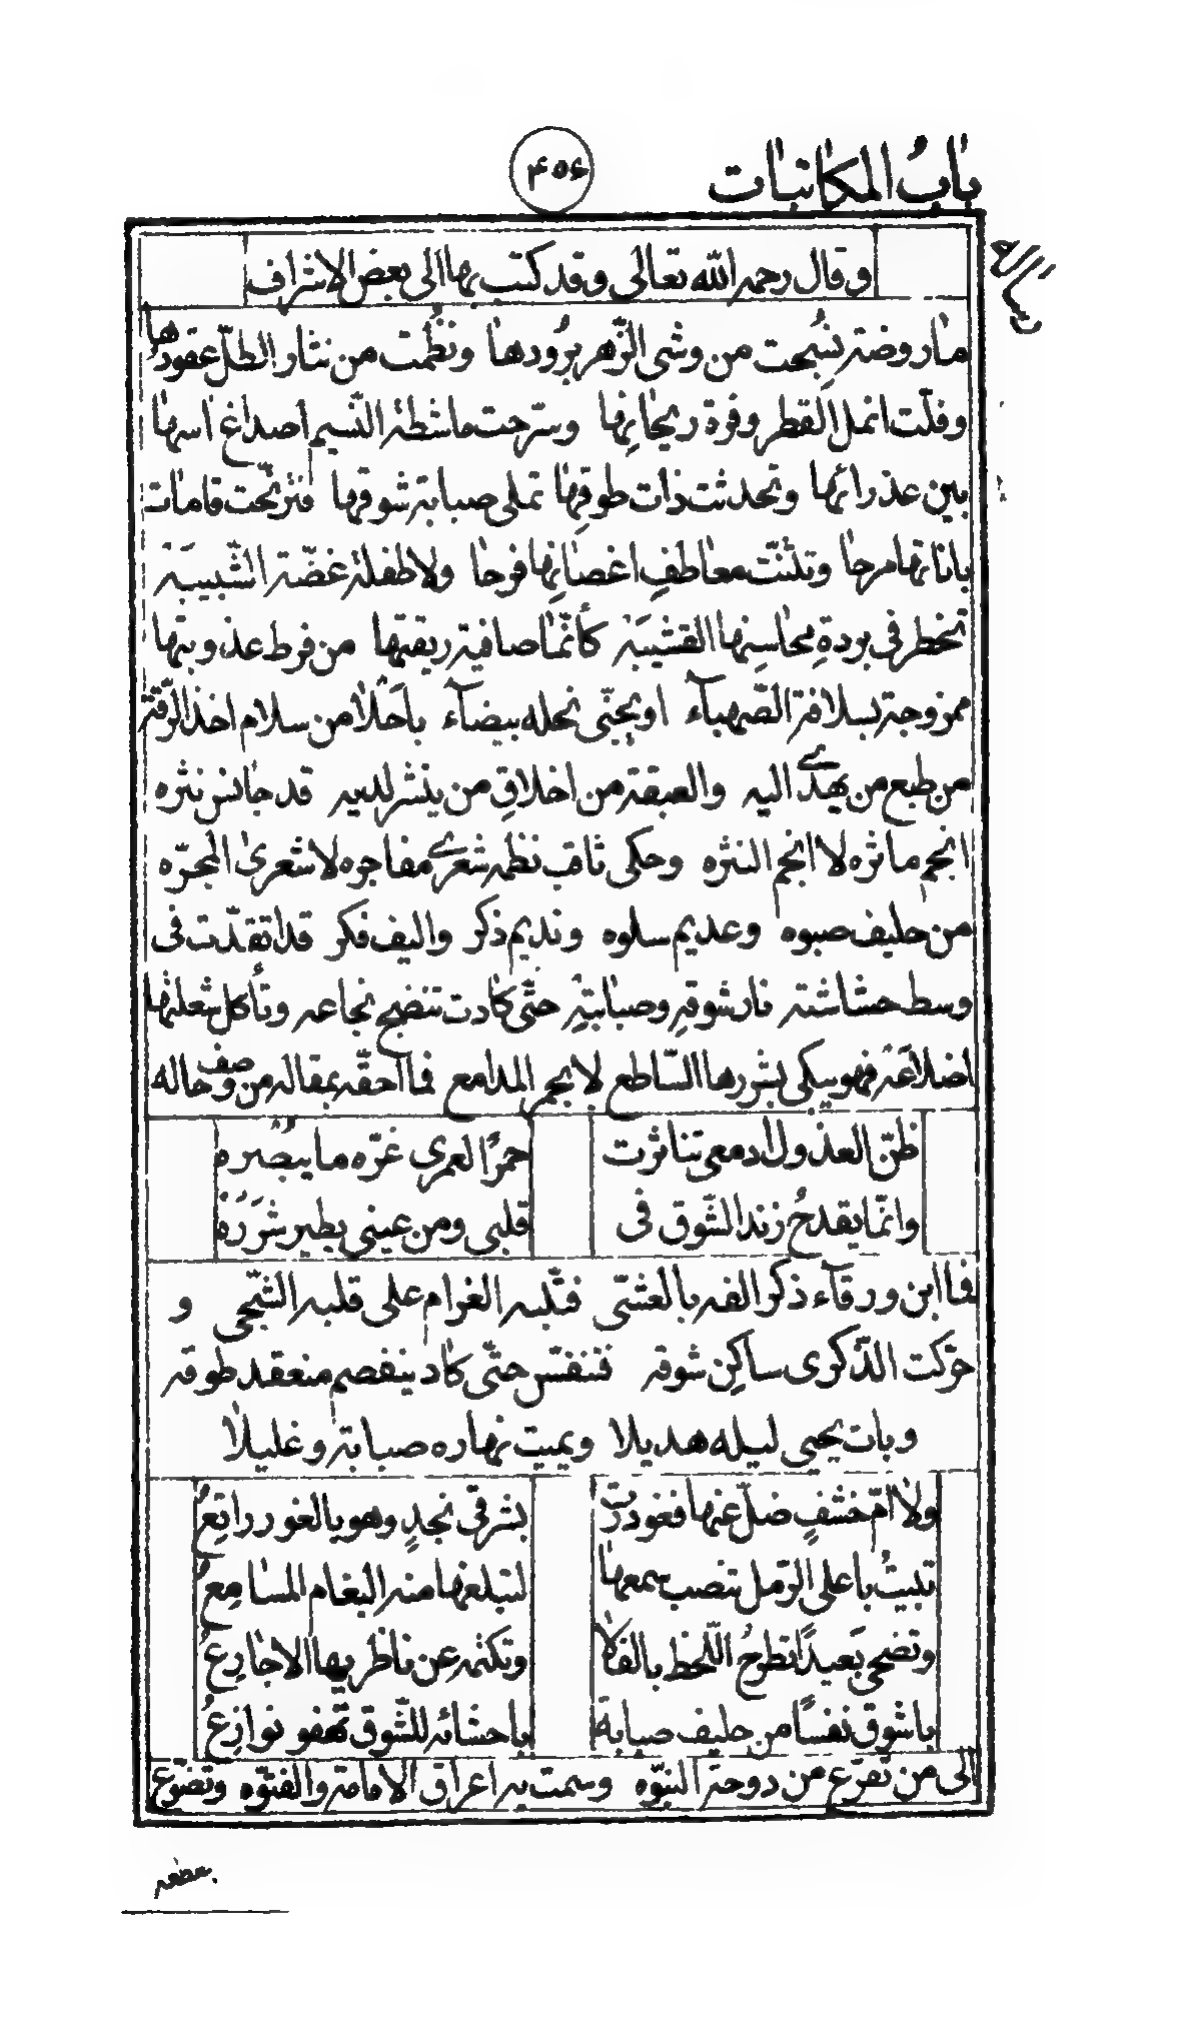 باب المكاتبات
۴۵۶
وقال رحمه الله تعالى وقد كتب بها الى بعض الاشراف
ما روضة نسجت من وشى الزهر برودها ونظمت من نثار الطلّ عقودها
وفلّت انمل القطر وفرة ريحانها وسرّحت ماشطة النّسيم اصداغ اسها
بين عذرائها وتحدثت ذات طوقها تملى صبابة شوقها فترنّحت قامات
باناتها مرحا وتثنّت معاطفِ اغصانها فرحا ولا طفلة غضّة الشّبيبة
تخطر فى بردةِ محاسنها القشيبة كأنّما صافية ريقتها من فرط عذوبتها
ممزوجة بسلافة الصّهباء او بجنّى نحله بيضآء باحَلا من سلام اخذ الرّقة
من طبع من يهدى اليه والعبقة من اخلاقِ من ينشر لديه قد جانس نثره
انجم ماثره لا انجم النثره وحكى ثاقب نظمه شعرى مفاخره لا شعرى المجرّه
من حليف صبوه وعديم سلوه ونديم ذكر واليف فكر قد اتقدّت فى
وسط حشاشته نار شوقهِ وصبابتهِ حتّى كادت تنضج نخاعه وتأكل شعلتها
اضلاعَه فهو يبكى بشررها السّاطع لا بجم المدامع فما احقّه بمقاله من وصف حاله
ظنّ العذول ادمعى تناثرت حمرًا لعمرى غرّه ما يبُصره
وانّما يقدحُ زند الشّوق فى قلبى ومن عينى يطير شَرَرَهُ
فما ابن ورقآء ذكر الفه بالعشىّ فنبّه الغرام على قلبه الشّجى و
حرّكت الذّكرى ساكن شوقه فتنفّس حتّى كاد ينفصم منعقد طوقه
وبات يحيى ليله هديلا ويميت نهاره صبابة وغليلا
ولا امّ خشفٍ ضلّ عنها فغودرت بشرقى نجدٍ وهو بالغور راتعُ
تبيتُ باعلى الرّمل تنصب سمعها لتبلغها منه البغام المسامعُ
وتضحى بَعيدًا تطرحُ اللّحظ بالفلا وتكتمه عن ناظريها الاجارعُ
باشوق نفسًا من حليف صبابة باحشائه للشّوق تهفو نوازعُ
الى من تفرّع من دوحة النبوّه وسمت به اعراق الامامة والفتوّه وتضوّع